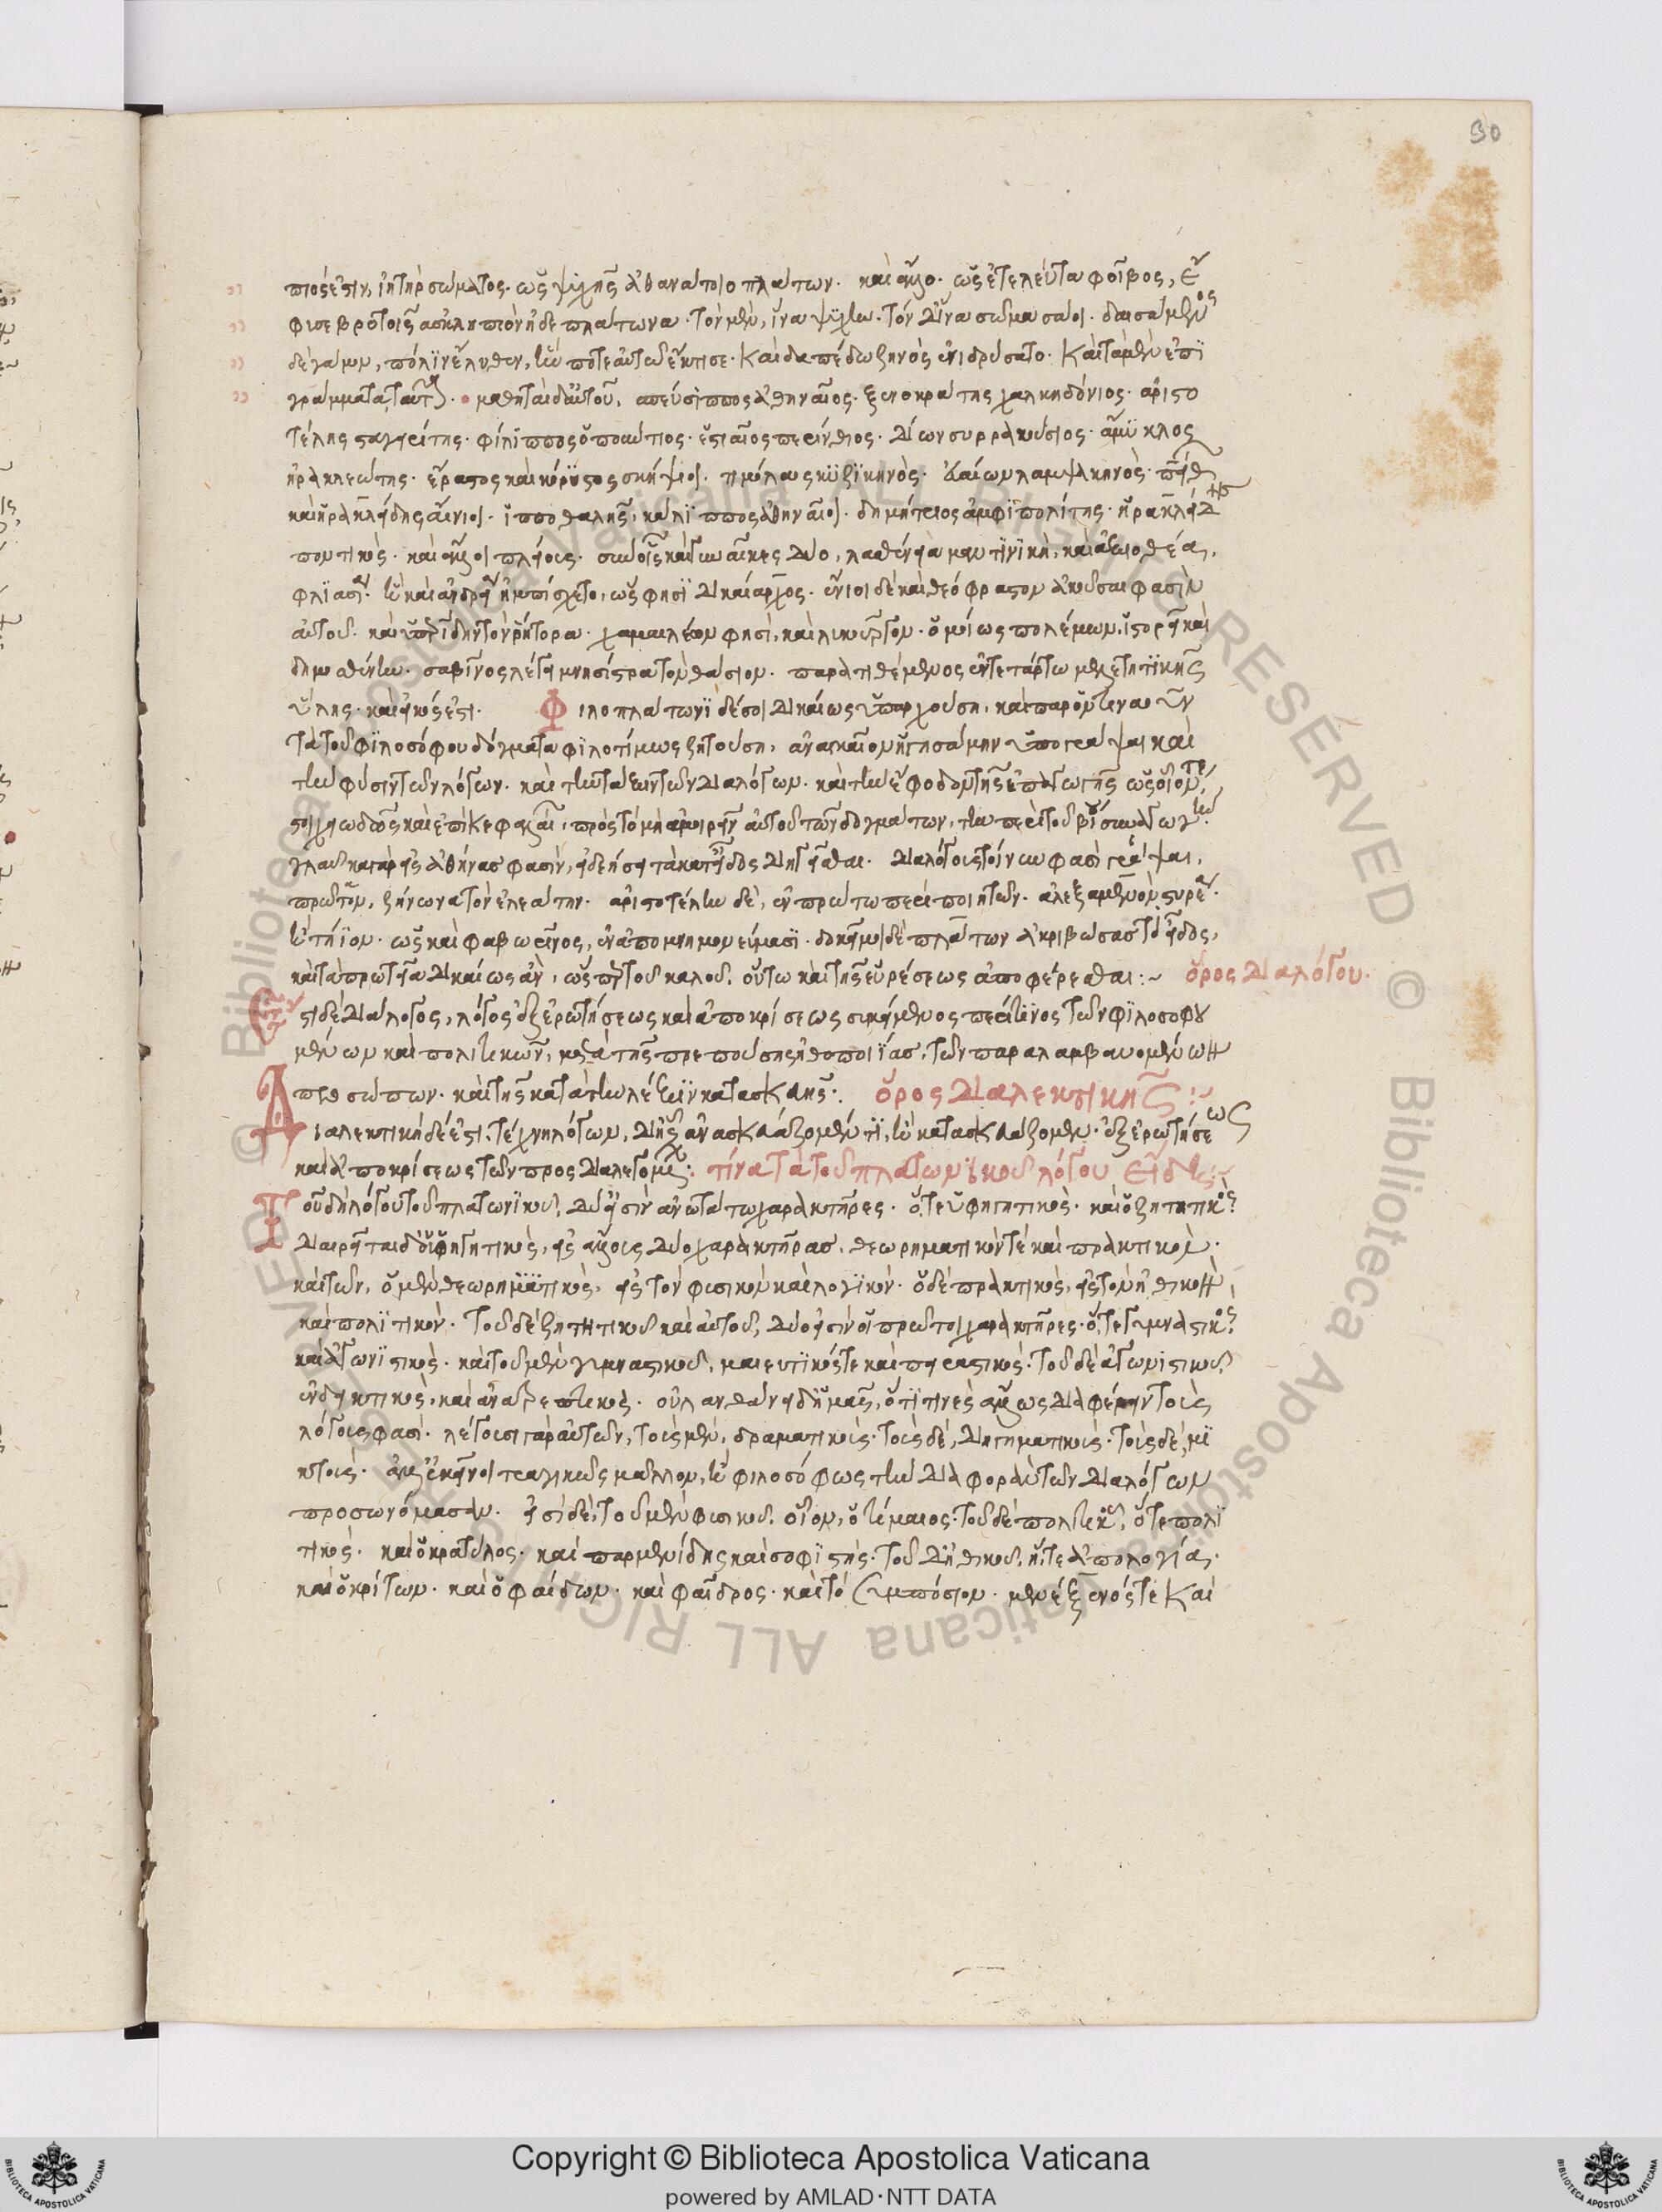 90
πιός ἐστιν, ἰητὴρ σώματος. ὡς ψυχῆς ἀθανάτοιο πλάτων. καὶ ἄλλο. ὡς ἐτελεύτα φοῖβος, ἔ
φυσε βροτοῖς ἀσκληπιὸν ἠδὲ πλάτωνα. τὸν μὲν, ἵνα ψυχὴν. τὸν δ' ἵνα σῶμα σάοι. δαισάμενος
δὲ γάμον, πόλιν ἤλυθεν, ἥν ποτε αὐτῶ ἔκτισε. καὶ δαπέδω ζηνὸς ἐνιδρύσατο. καὶ τὰ μὲν ἐπι
γράμματα, ταῦτα. μαθηταὶ δ' αὐτοῦ, σπεύσιππος ἀθηναῖος. ξενοκράτης χαλκηδόνιος. ἀριστο
τέλης σταγειρίτης. φίλιππος ὀπούντιος. ἑστιαῖος περίνθιος. δίων συρρακούσιος. ἄμυκλος
ἡρακλεώτης. ἔραστος καὶ κόρισκος σκήψιοι. τιμόλαος κυζικηνὸς. εὐαίων λαμψακηνὸς. πύθων
καὶ ἡρακλείδης αἴνιοι. ἱπποθαλῆς, κάλιππος ἀθηναῖοι. δημήτριος ἀμφιπολίτης. ἡρακλείδης
ποντικὸς. καὶ ἄλλοι πλείους. σὺν οἷς καὶ γυναῖκες δύο, λασθένεια μαντινικὴ, καὶ ἀξιοθέα,
φλιασία. ἣ καὶ ἀνδρεῖα ἠμπίσχετο, ὥς φησι δικαίαρχος. ἔνιοι δὲ καὶ θεόφραστον ἀκοῦσαι φασὶν
αὐτοῦ. καὶ ὑπερίδην τὸν ῥήτορα. χαμαιλέων φησὶ, καὶ λυκοῦργον. ὁμοίως πολέμων, ἱστορεῖ καὶ
δημοσθένην. σαβῖνος λέγει μνησίστρατον θάσιον. παρατιθέμενος ἐν τετάρτω μελετητικῆς
ὕλης. καὶ εἰκός ἐστι. Φιλοπλάτωνι δέ σοι δικαίως ὑπαρχούση, καὶ παρ' ὁντιναοῦν
τὰ τοῦ φιλοσόφου δόγματα φιλοτίμως ζητούση, ἀναγκαῖον ἡγησάμην ὑπογράψαι καὶ
τὴν φύσιν τῶν λόγων. καὶ τὴν τάξιν τῶν διαλόγων. καὶ τὴν ἔφοδον τῆς ἐπαγωγῆς ὡς οἷόν τε,
στοιχειωδῶς καὶ ἐπὶ κεφαλαίων, πρὸς τὸ μὴ ἀμοιρεῖν αὐτοῦ τῶν δογμάτων, τὴν περὶ τοῦ βίου συναγωγήν.
γλαῦκα γὰρ εἰς ἀθήνας φασὶν, εἰ δεήσει τὰ κατ' εἶδος διηγεῖσθαι. διαλόγους τοίνυν φασὶ γράψαι,
πρῶτον, ζήνωνα τὸν ἐλεάτην. ἀριστοτέλην δὲ, ἐν πρώτω περὶ ποιητῶν. ἀλεξαμενὸν στυρέα.
ἢ τήϊον. ὡς καὶ φαβωρῖνος, ἐν ἀπομνημονεύμασι. δοκεῖ μοι δὲ πλάτων ἀκριβώσας τὸ εἶδος,
καὶ τὰ πρωτεῖα δικαίως ἂν, ὥσπερ τοῦ καλοῦ, οὕτω καὶ τῆς εὑρέσεως ἀποφέρεσθαι :~ ὅρος διαλόγου.
Ἔστι δὲ διάλογος, λόγος ἐξ ἐρωτήσεως καὶ ἀποκρίσεως συγκείμενος περί τινος τῶν φιλοσοφου
μένων καὶ πολιτικῶν, μετὰ τῆς πρεπούσης ἠθοποιΐας, τῶν παραλαμβανομένων
προσώπων. καὶ τῆς κατὰ τὴν λέξιν κατασκευῆς. ὅρος διαλεκτικῆς :~
Διαλεκτικὴ δέ ἐστι, τέχνη λόγων, δι' ἧς ἀνασκευάζομέν τι, ἢ κατασκευάζομεν. ἐξ ἐρωτήσεως
καὶ ἀποκρίσεως τῶν προσδιαλεγομένων: τίνα τὰ τοῦ πλατωνικοῦ λόγου εἴδη :~
Τοῦ δὴ λόγου τοῦ πλατωνικοῦ, δύ' εἰσὶν ἀνωτάτω χαρακτῆρες. ὅ τε ὑφηγητικὸς. καὶ ὁ ζητητικός.
διαιρεῖται δ' ὁ ὑφηγητικὸς, εἰς ἄλλους δύο χαρακτῆρας, θεωρηματικόν τε καὶ πρακτικὸν.
καὶ τῶν, ὁ μὲν θεωρηματικὸς, εἰς τὸν φυσικὸν καὶ λογικόν. ὁ δὲ πρακτικὸς, εἰς τὸν ἠθικὸν,
καὶ πολιτικόν. τοῦ δὲ ζητητικοῦ καὶ αὐτοῦ, δύο εἰσὶν οἱ πρῶτοι χαρακτῆρες. ὅ τε γυμναστικός,
καὶ ἀγωνιστικὸς. καὶ τοῦ μὲν γυμναστικοῦ, μαιευτικός τε καὶ πειραστικὸς. τοῦ δὲ ἀγωνιστικοῦ,
ἐνδεικτικὸς, καὶ ἀνατρεπτικὸς. οὐ λανθάνει δ' ἡμᾶς, ὅτι τινὲς ἄλλως διαφέρειν τοὺς
λόγους φασὶ. λέγουσι γὰρ αὐτῶν, τοὺς μὲν, δραματικοὺς. τοὺς δὲ, διηγηματικοὺς. τοὺς δὲ, μι
κτοὺς. ἀλλ' ἐκεῖνοι τραγικῶς μᾶλλον, ἢ φιλοσόφως τὴν διαφορὰν τῶν διαλόγων
προσωνόμασαν. εἰσὶ δὲ, τοῦ μὲν φυσικοῦ, οἷον, ὁ τίμαιος. τοῦ δὲ πολιτικοῦ, ὅ τε πολι
τικὸς. καὶ ὁ κρατύλος. καὶ παρμενίδης καὶ σοφιστής. τοῦ δ' ἠθικοῦ, ἥ τε ἀπολογία.
καὶ ὁ κρίτων. καὶ ὁ φαίδων. καὶ φαῖδρος. καὶ τὸ συμπόσιον. μενέξενός τε καὶ